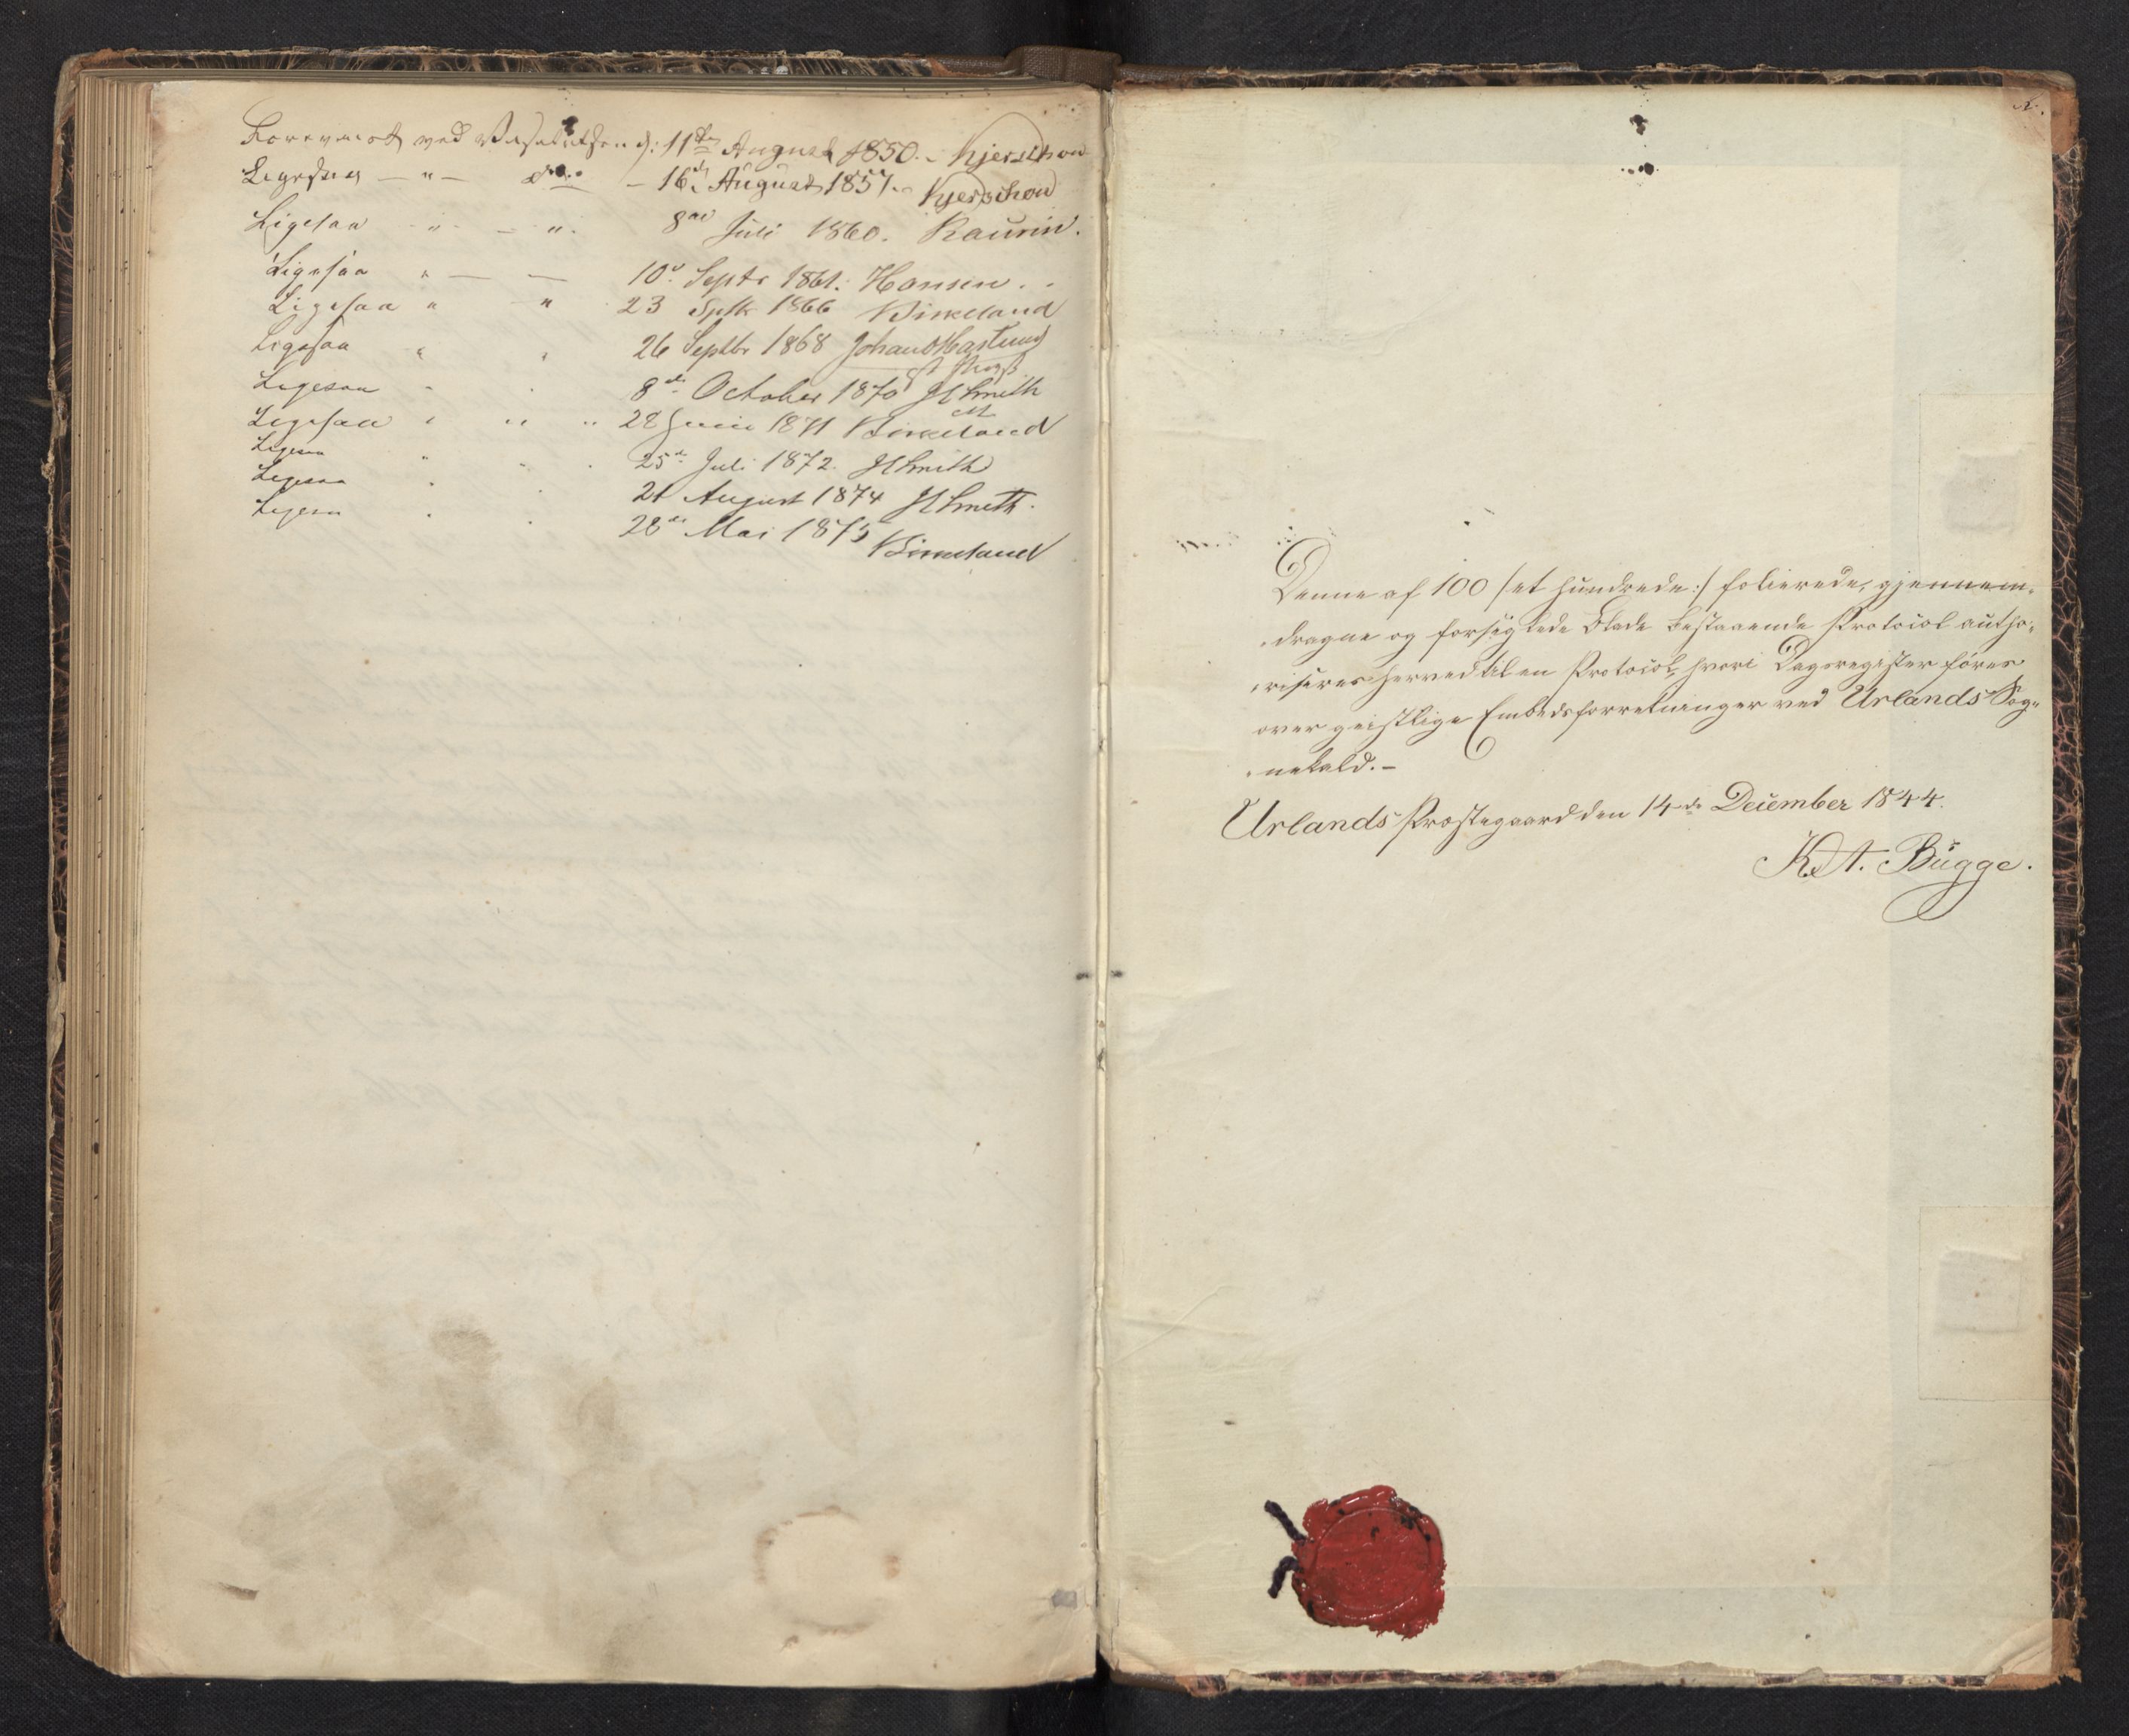 Forevviist ved Visitatsen d: 11te August 1850. - Kjerschow
Ligesaa — " — do — 16de August 1857. - Kjerschow
Ligesaa - " - — " . 8de Juli 1860. Kaurin.
Ligesaa " — — 10de Septr 1861. Hansen.
Ligesaa " " 23 Septbr 1866 Birkeland
Ligesaa " " 26 Septbr 1868 Johan Haslund
Ligesaa " " 8de October 1870 JSmith
Ligesaa " " " 28 Juni 1871 Birkeland
Ligesaa " " 25de Juli 1872. JSmith
Ligesaa " " 21 August 1874 JSmith.
Ligesaa " " 28de Mai 1875 Birkeland
Denne af 100 /: et hundrede :/ folierede, gjennem-
dragne og forseglede Blade bestaaende Protocol autho-
riseres herved til en Protocol, hvori Dagsregister føres
over geistlige Embedsforretninger ved Urlands Sog-
nekald. -
Urlands Præstegaard den 14de December 1844.
K. A. Bugge.